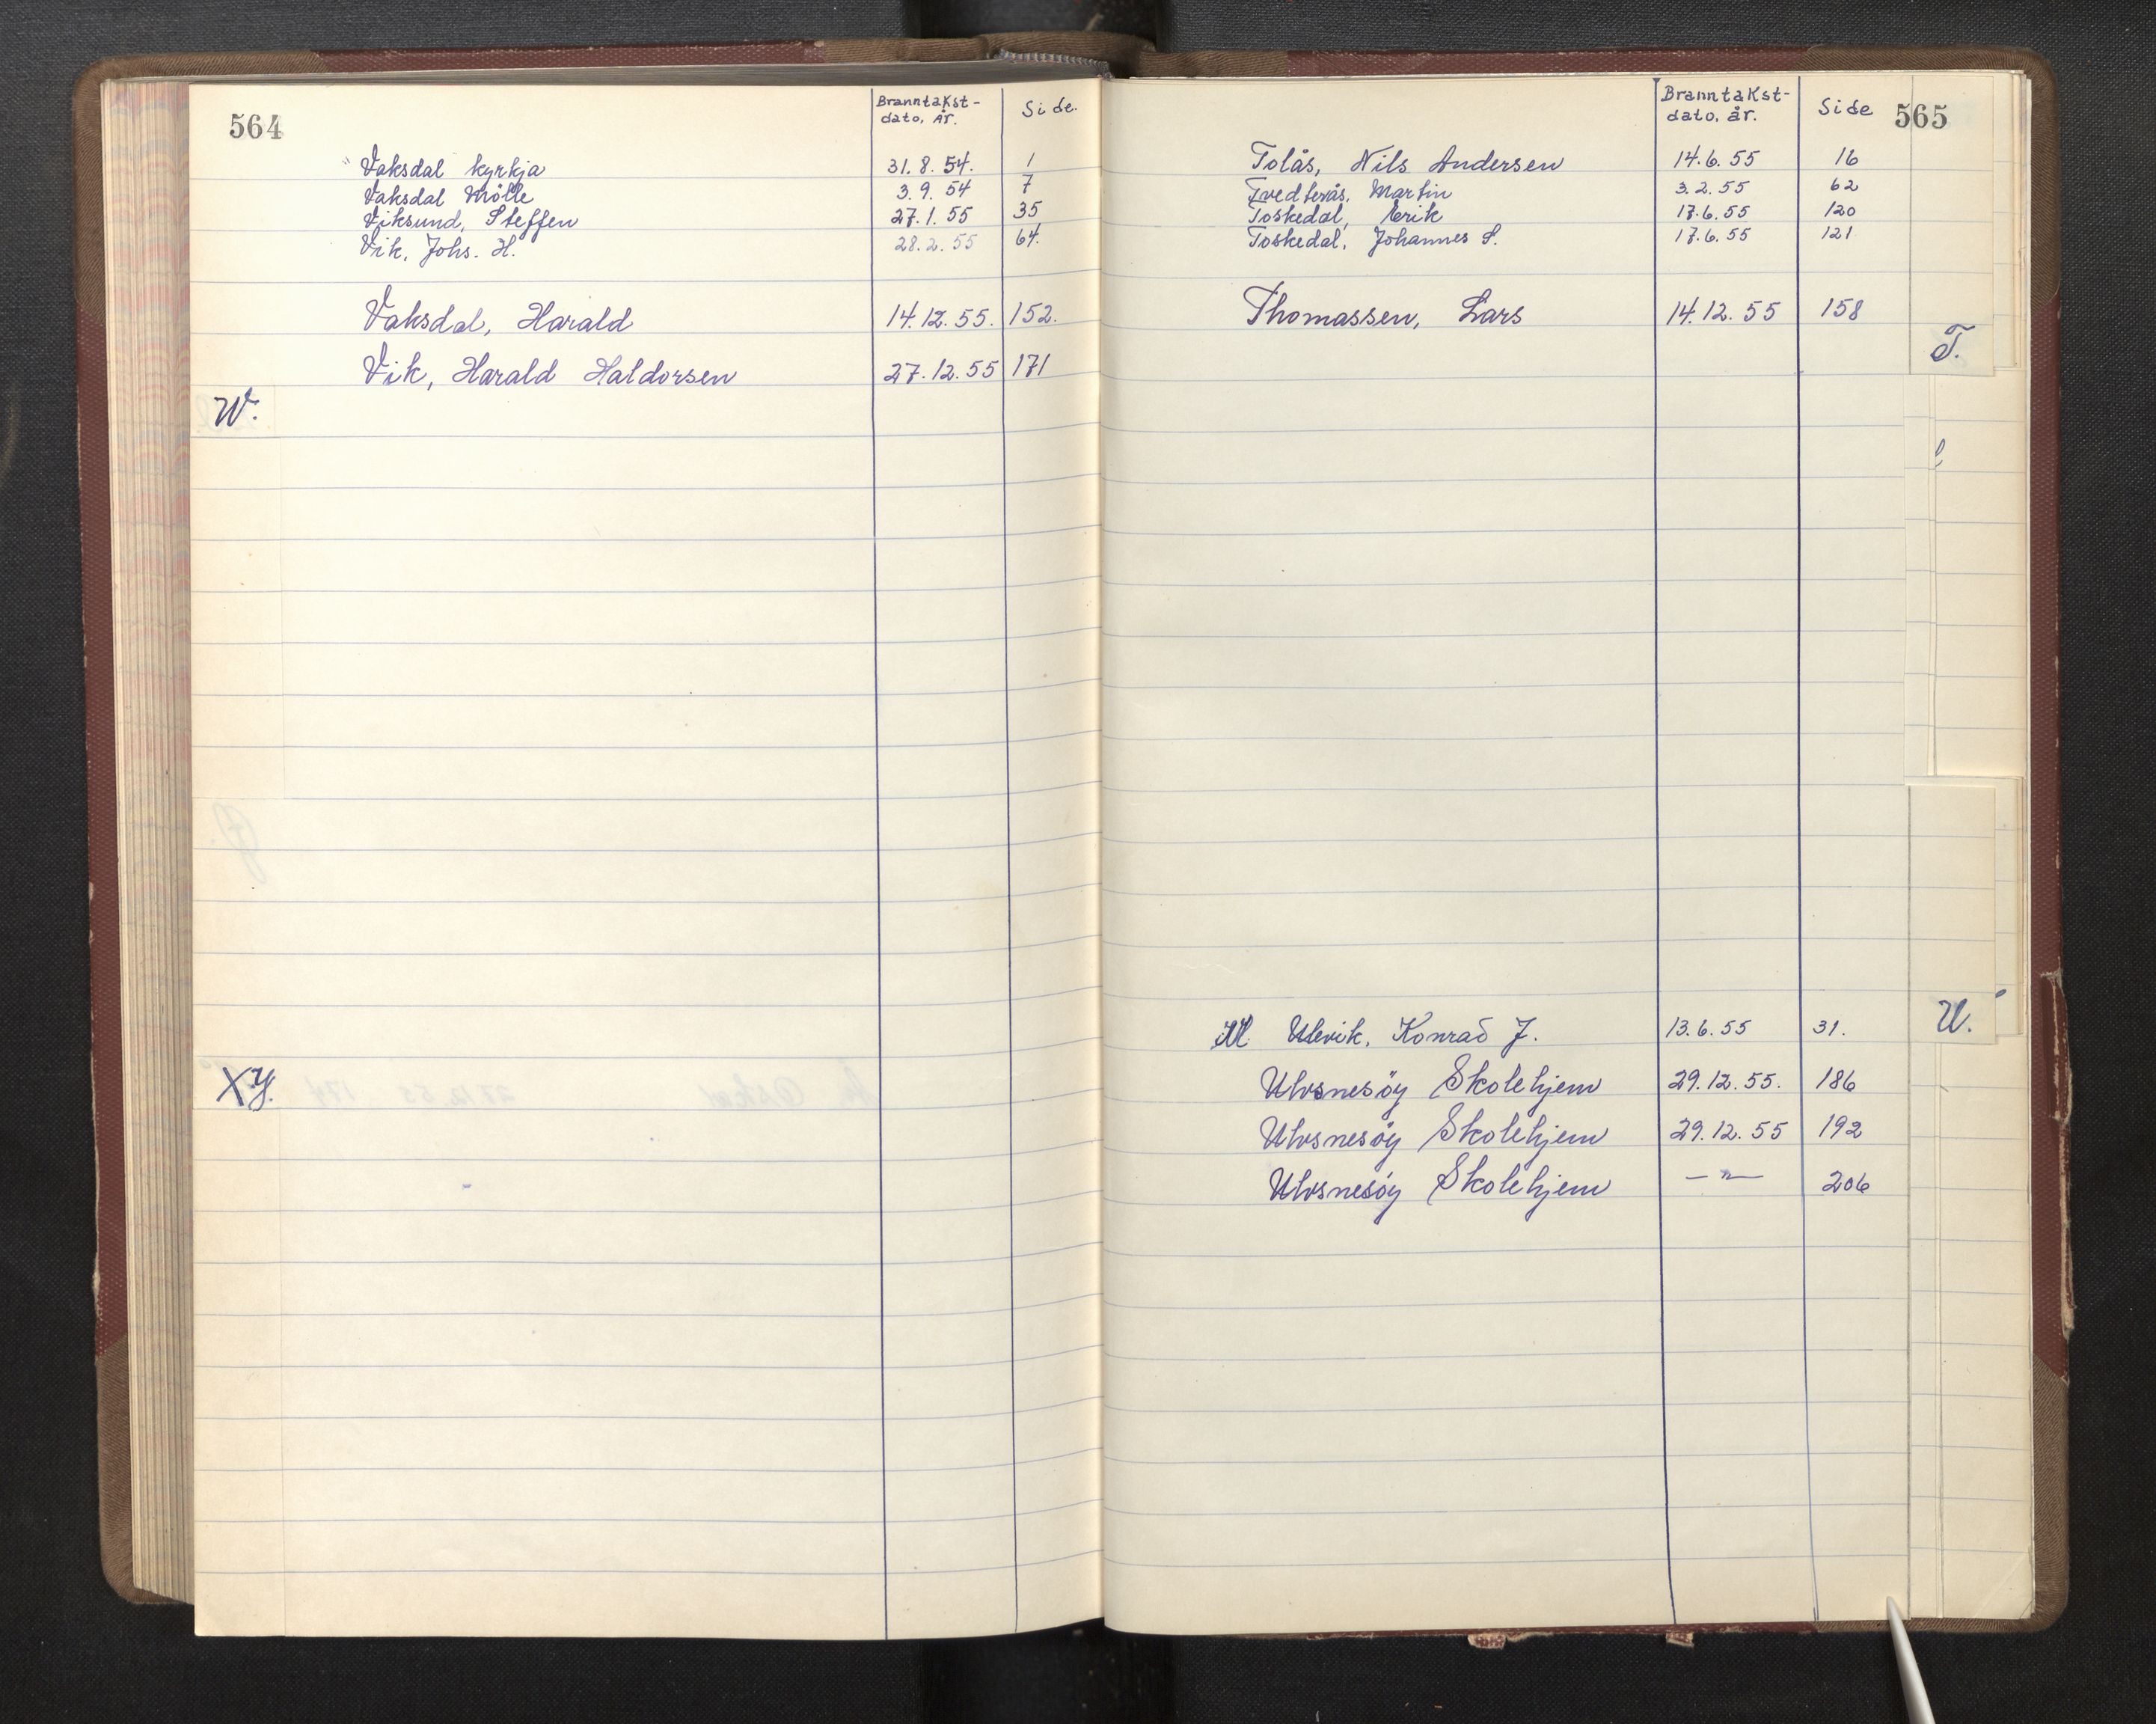 564
Branntakst-
dato, År.
Side.
Vaksdal kyrkja 31.8.54. 1
Vaksdal Mølle 3.9.54 7
Viksund, Steffen 27.1.55 35
Vik, Johs. H. 28.2.55 64.
Vaksdal, Harald 14.12.55. 152.
Vik, Harald Haldorsen 27.12.55 171
W.
XY.
565
Branntakst-
dato, år.
Side
Tolås, Nils Andersen 14.6.55 16
Tvedterås, Martin 3.2.55 62
Toskedal, Erik 17.6.55 120
Toskedal, Johannes S. 17.6.55 121
Thomassen, Lars 14.12.55 158
T.
Ulevik, Konrad J. 13.6.55 31.
U.
Ulvsnesöy Skolehjem 29.12.55. 186
Ulvsnesöy Skolehjem 29.12.55 192
Ulvsnesöy Skolehjem — " — 206